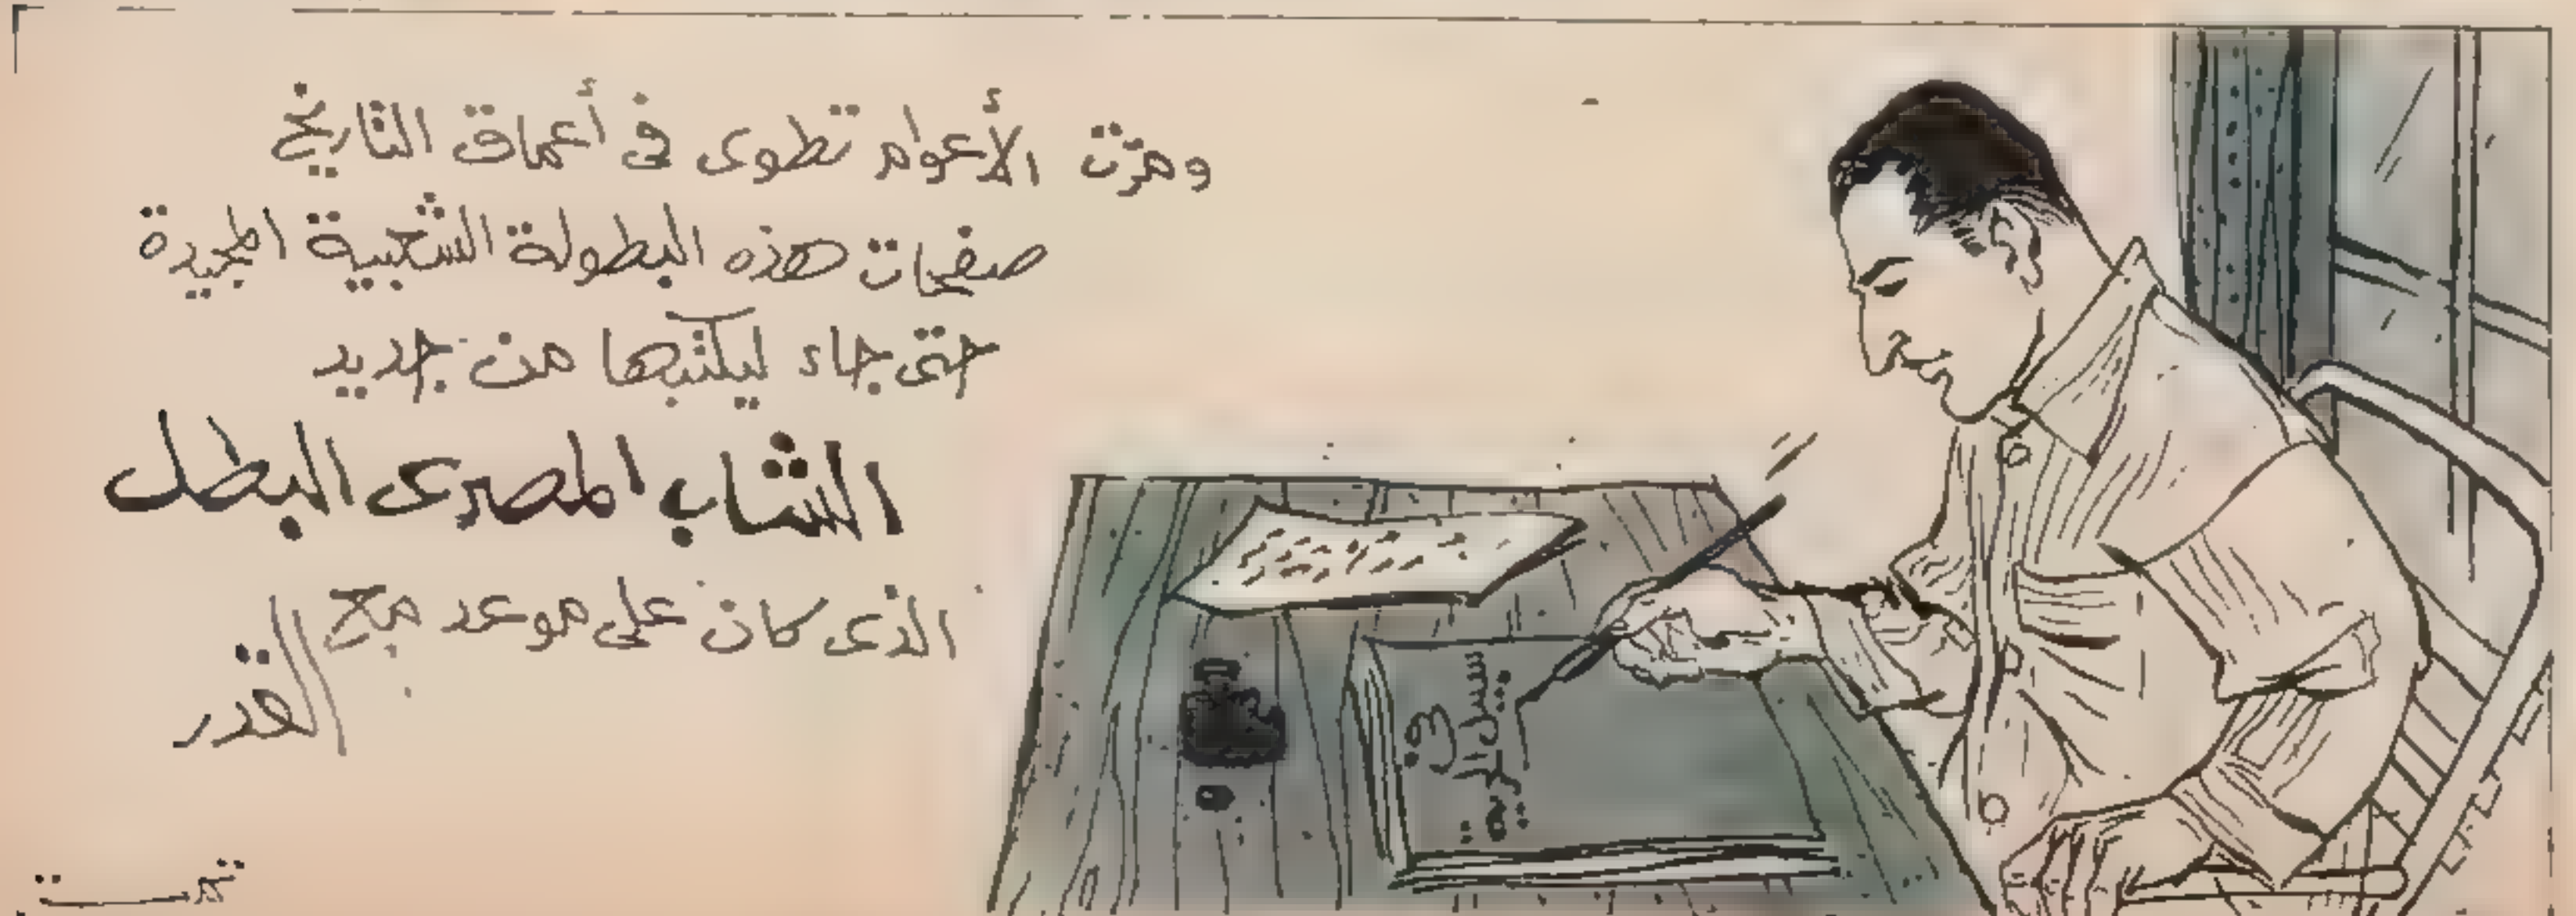 ومرّت الأعوام تطوى فى أعماق التاريخ
صفحات هذه البطولة الشعبية المجيدة
حتى جاء ليكتبها من جديد
الشاب المصرى البطل
الذى كان على موعد مع
القدر
فى
سبيل
الحرية
تمت